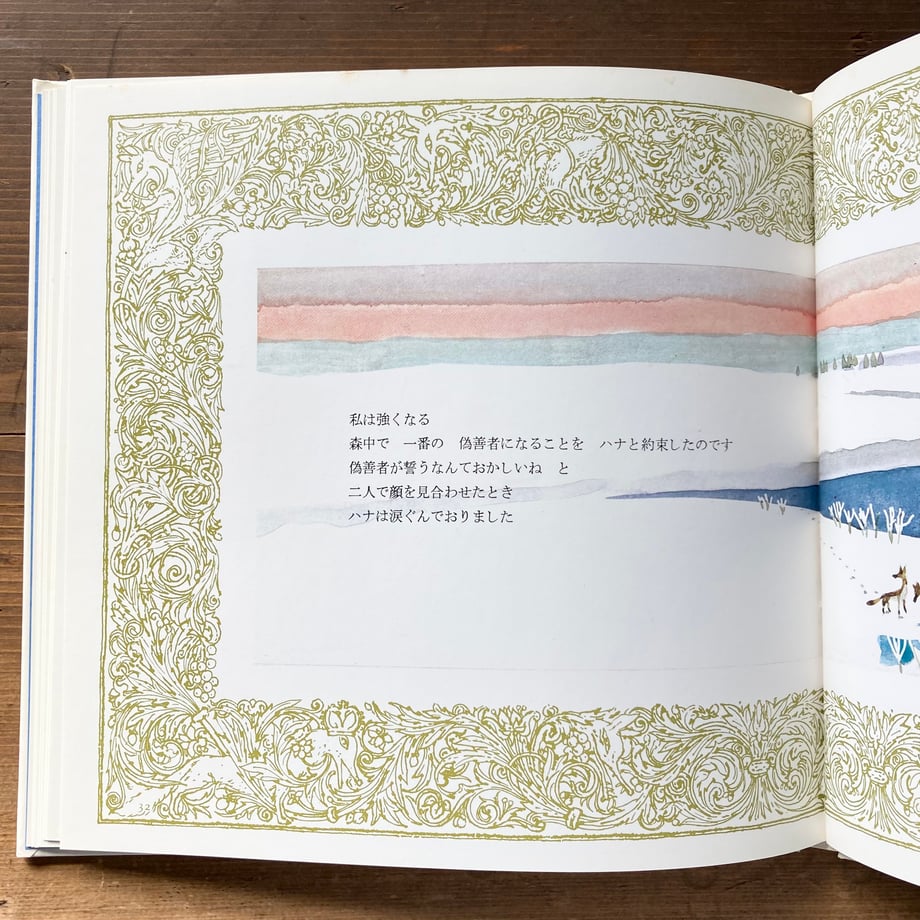 私は強くなる
森中で　一番の　偽善者になることを　ハナと約束したのです
偽善者が誓うなんておかしいね　と
二人で顔を見合わせたとき
ハナは涙ぐんでおりました
32